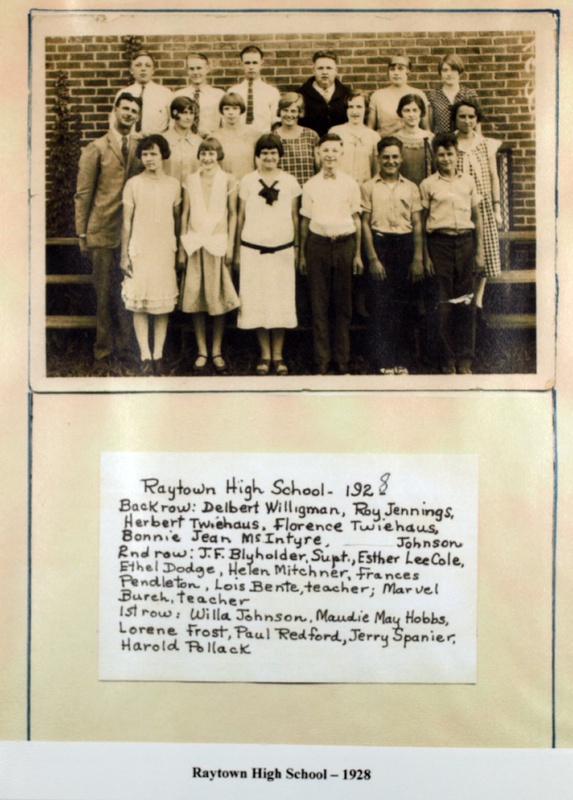 Raytown High School - 1928
Back row: Delbert Willigman, Roy Jennings,
Herbert Twiehaus, Florence Twiehaus,
Bonnie Jean McIntyre, ____ Johnson
2nd row: J.F. Blyholder, Supt., Esther Lee Cole,
Ethel Dodge, Helen Mitchner, Frances
Pendleton, Lois Bente, teacher; Marvel
Burch, teacher
1st row: Willa Johnson, Maudie May Hobbs,
Lorene Frost, Paul Redford, Jerry Spanier,
Harold Pollack
Raytown High School – 1928